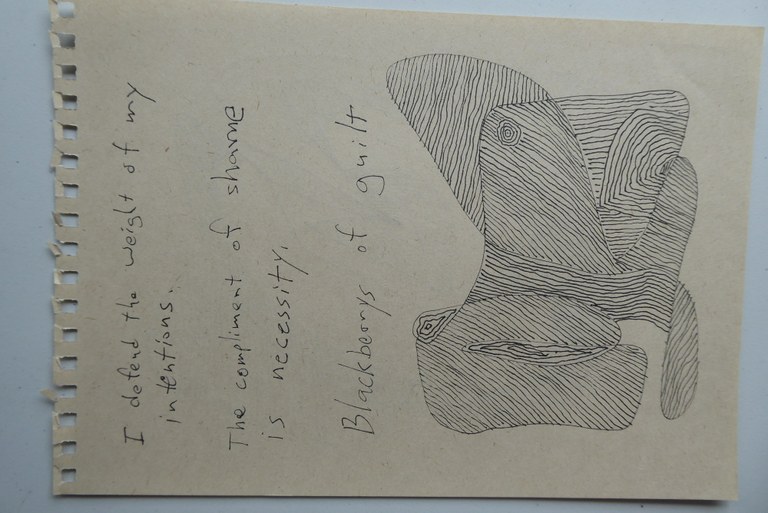 I defend the weight of my
intentions.
The compliment of shame
is necessity.
Blackberrys of guilt